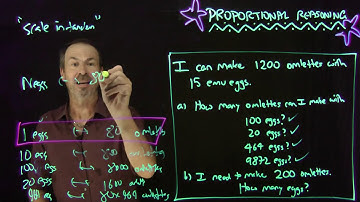 "Scale in tandem"
PROPORTIONAL REASONING
N eggs
1 eggs ↔ 80 omlettes
10 eggs ↔ 800 omlettes
100 eggs ↔ 8000 omlettes
20 eggs ↔ 1600 omlettes
80x464 omlettes
I can make 1200 omlettes with
15 emu eggs.
a) How many omlettes can I make with
100 eggs? ✓
20 eggs? ✓
464 eggs? ✓
9872 eggs? ✓
b) I need to make 200 omlettes.
How many eggs?